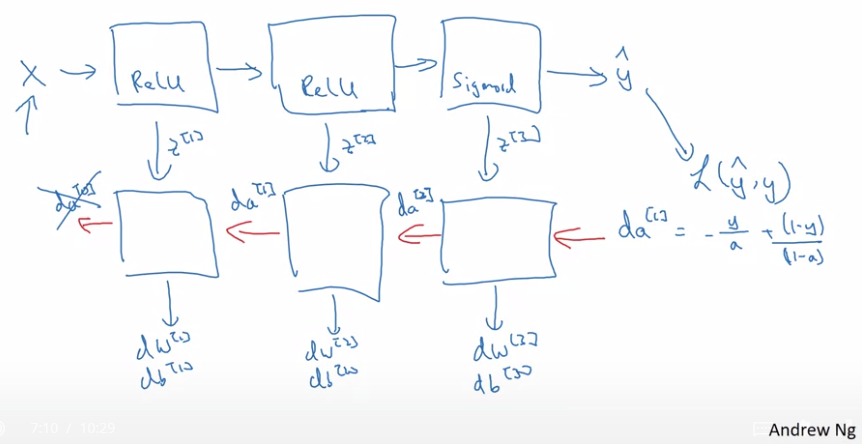 X → ReLU → ReLU → Sigmoid → ŷ
z^[1] z^[2] z^[3]
L(ŷ, y)
da^[0] da^[1] da^[2] da^[l] = - y/a + (1-y)/(1-a)
dw^[1] dw^[2] dw^[3]
db^[1] db^[2] db^[3]
7:10 / 10:29
Andrew Ng